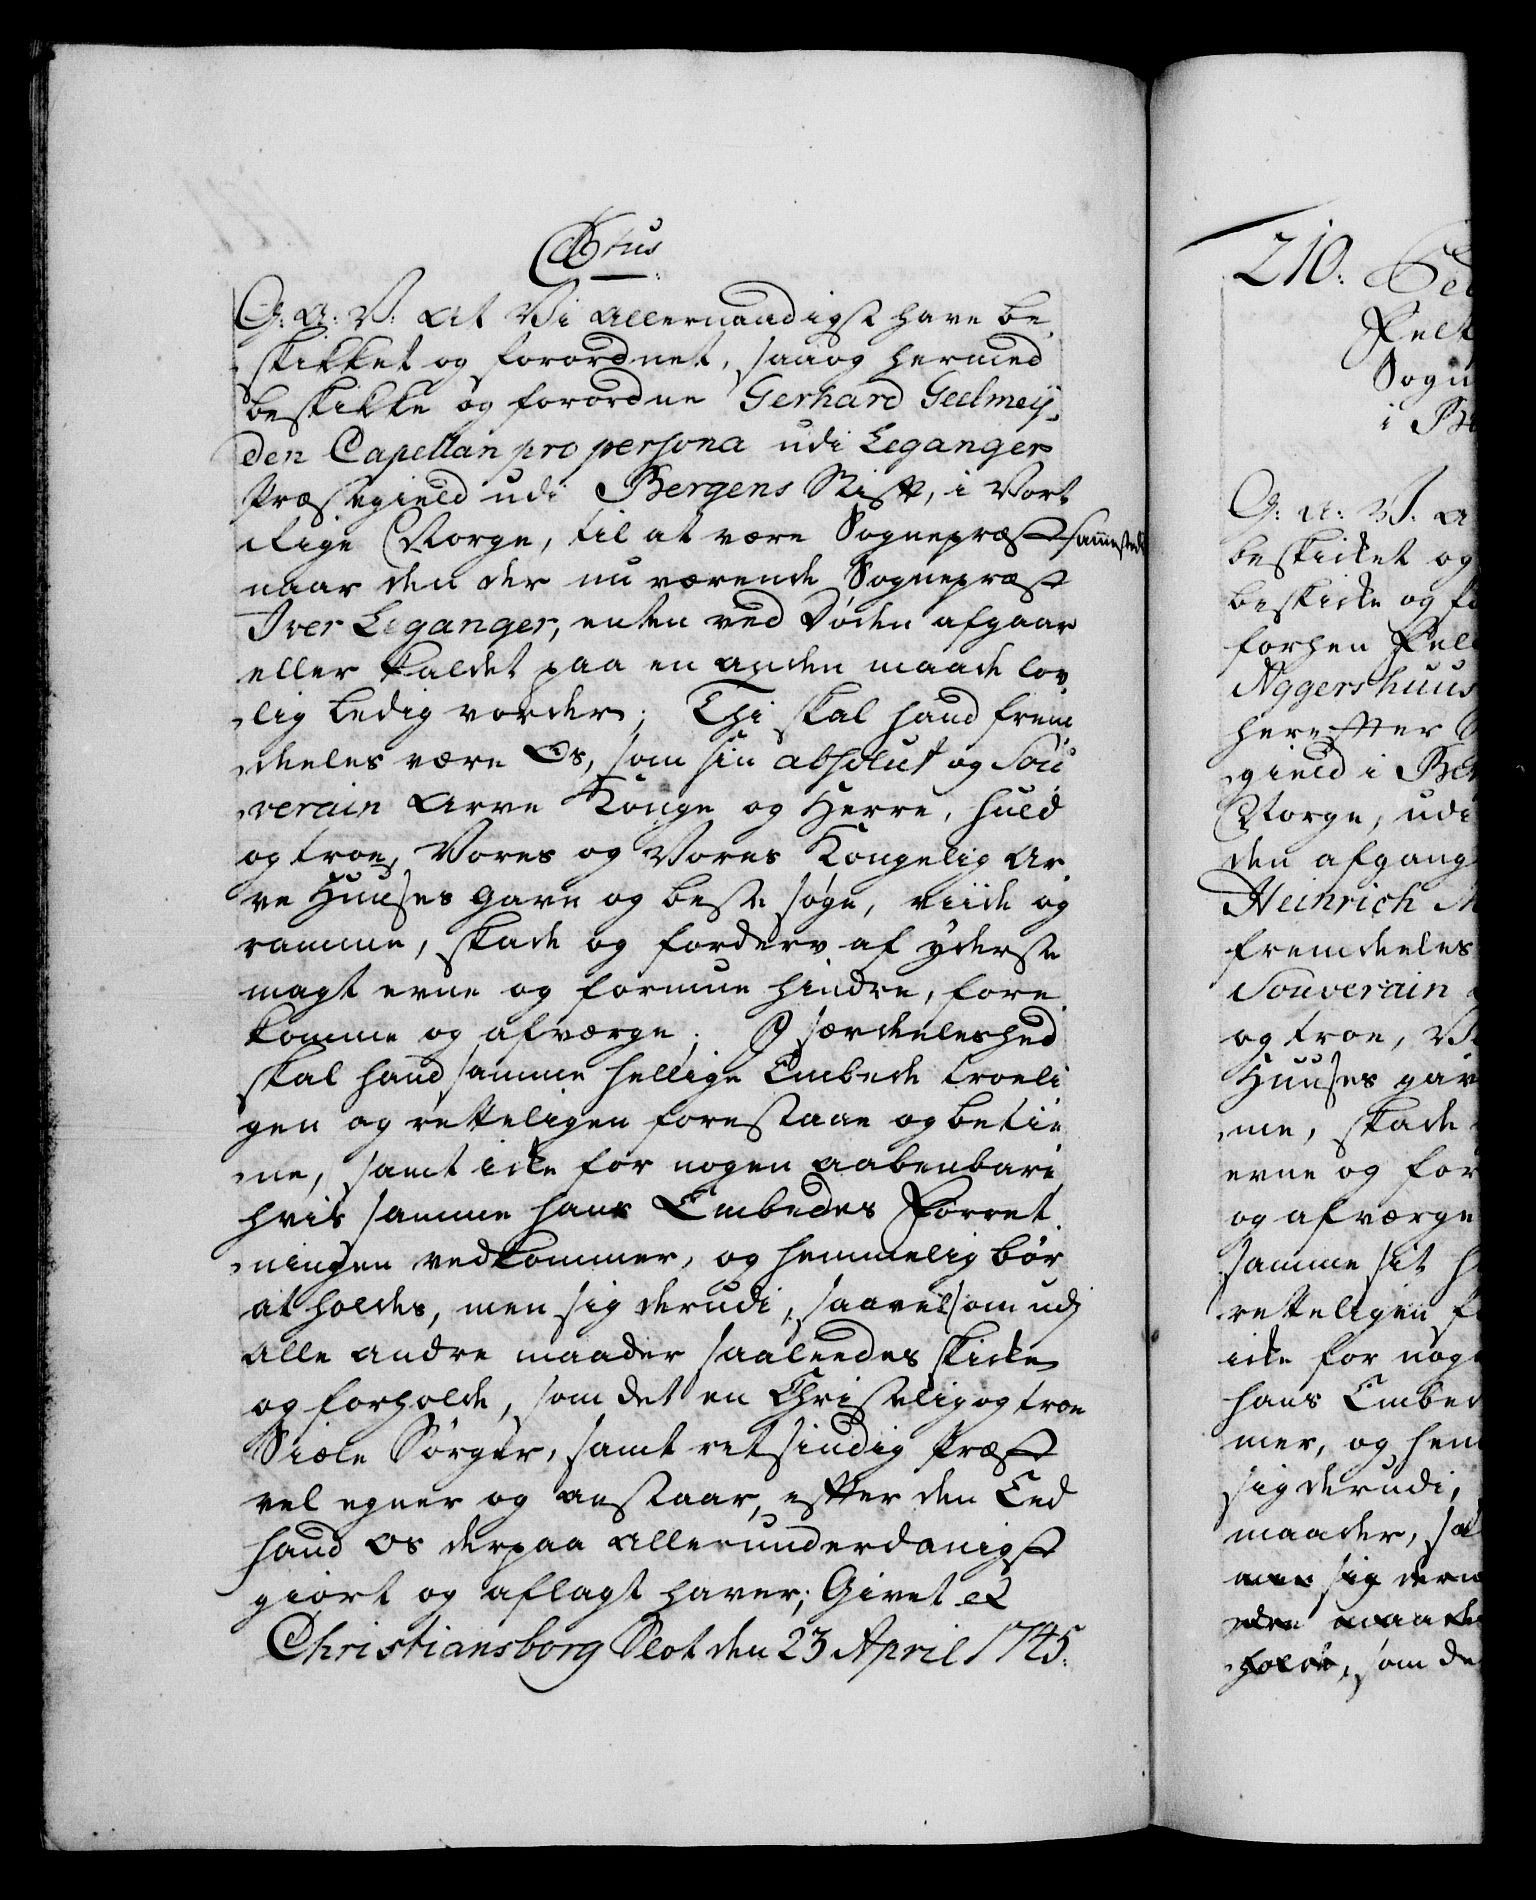 C 6tus
G: A: V: At Vi Allernaadigst have be,
skikket og forordnet, saa og hermed
beskikke og forordne Gerhard Geelmeÿ,
den Capellan pro persona udi Leganger
Præstegield udi Bergens Stift, i Vort
Rige Norge, til at være Sognepræst sammested
naar den der nu værende Sognepræst
Iver Leganger, enten ved Døden afgaar
eller Kaldet paa en anden maade lov,
lig ledig vorder; Thi skal hand frem
deeles være Os, som sin absolut og Sou
verain Arve Konge og Herre, huld
og troe, Vores og Vores Kongelig Ar,
ve Huuses gavn og beste søge, viide og
ramme, skade og forderv af yderste
magt evne og formue hindre, fore,
komme og afværge. I særdeleshed
skal hand samme hellige Embede troeli
gen og retteligen forestaae og betie
ne, samt icke for nogen aabenbare,
hvis samme hans Embedes Forret,
ningen vedkommer, og hemmelig bør
at holdes, men sig derudi, saavelsom udi
alle andre maader saaleedes skicke
og forholde, som det en Christelig og troe
Siæle Sørger, samt retsindig Præst
vel egner og anstaar, efter den Eed
hand Os derpaa allerunderdanigst
giort og aflagt haver; Givet et
Christiansborg Slot den 23 April 1745.
210.
Felt
Sogn
i Be
G: A: V: A
beskicket og
beskicke og fo
forhen Felt
Aggershuus
herefter
gield i Ber
Norge, udi
den afgang
Heinrich M
fremdeeles
Souverain
og troe, Vo
Huuses gav
me, skade
evne og for
og afværge
samme sit h
retteligen fo
icke for noge
hans Embed
mer, og hem
sig derudi,
maader, saa
men sig deru
dre maade
holde, som de